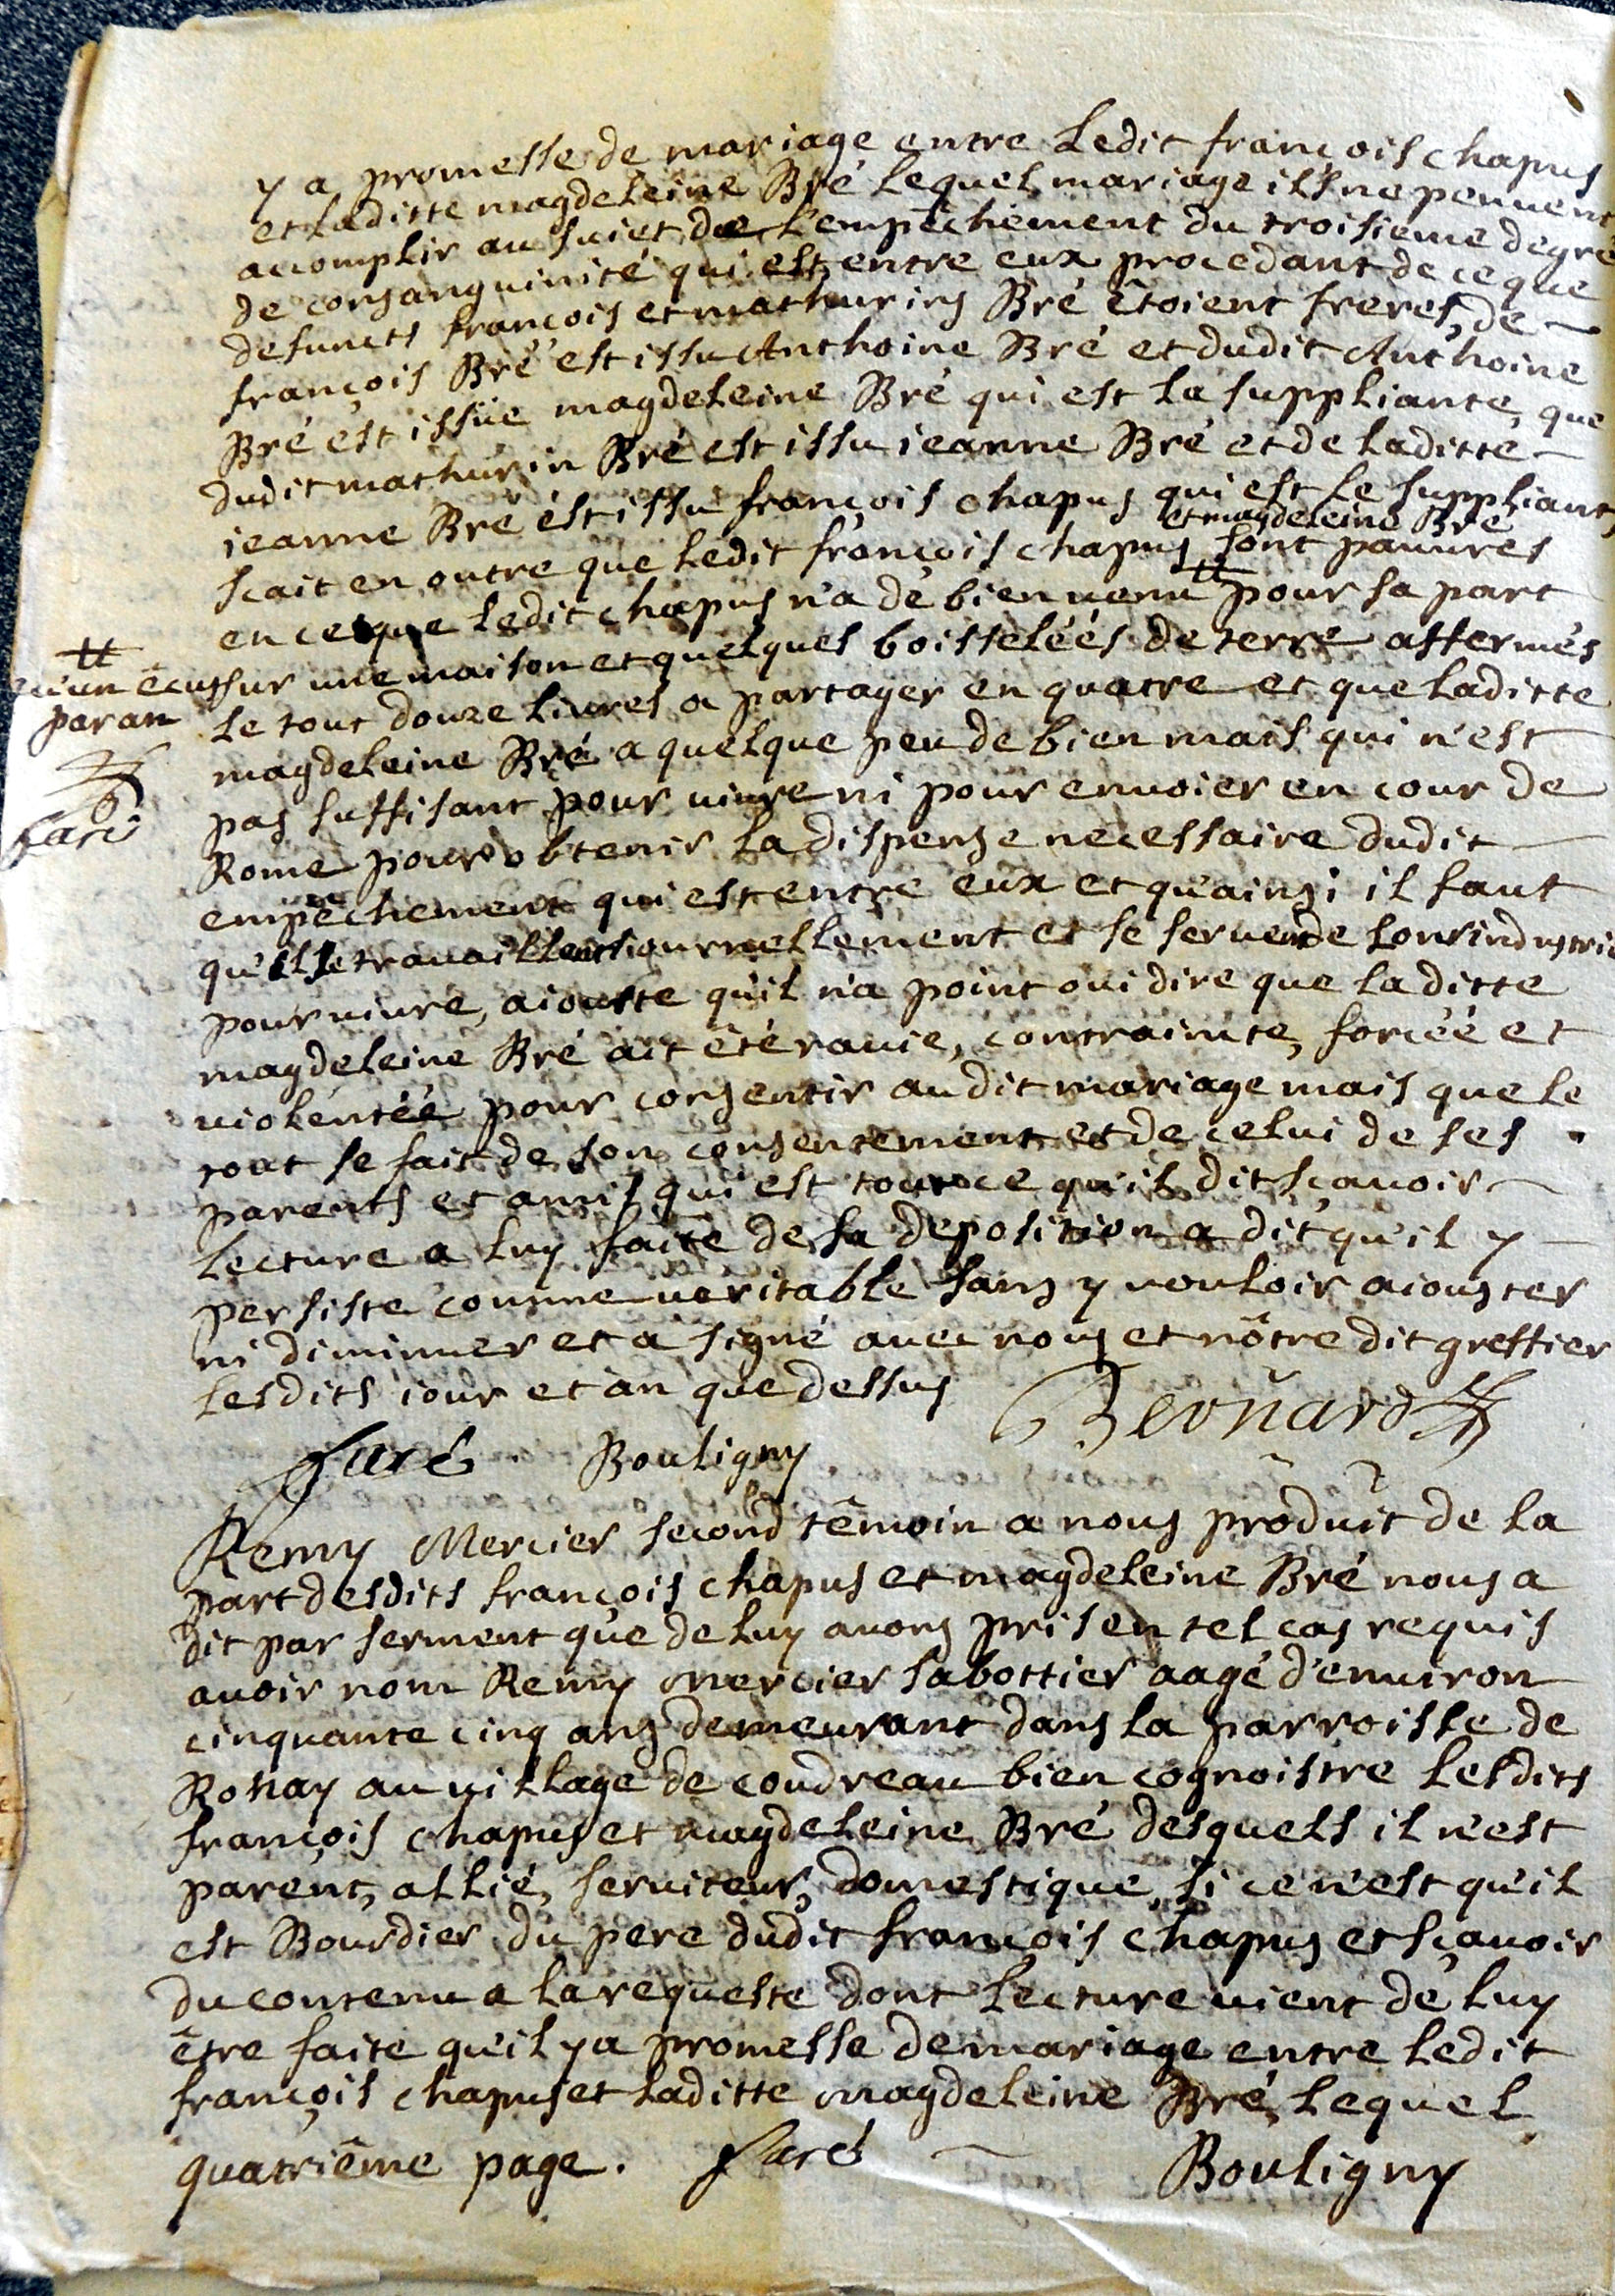 y a promesse de mariage entre Ledit françois chapus
et Laditte magdeleine Bré Lequel mariage ils ne peuvent
accomplir au suiet de L'empêchement du troisieme degré
de consanguinité qui est entre eux procedant de ce que
defuncts françois et mathurin Bré êtoient freres, de
françois Bré est issu Anthoine Bré et dudit Anthoine
Bré est issüe magdeleine Bré qui est La suppliante, que
dudit mathurin Bré est issu ieanne Bré et de Laditte
ieanne Bré est issu françois chapus qui est Le suppliant,
et magdeleine Bré
scait en outre que Ledit françois chapus sont pauures
en ce que Ledit chapus n'a de bien venu # pour sa part
#
qu'un êcu
par an
faré
sur une maison et quelques boisselées de terre affermés
Le tout douze Liures a partager en quatre et que Laditte
magdeleine Bré a quelque peu de bien mais qui n'est
pas suffisant pour uiure ni pour enuoier en cour de
Rome pour obtenir La dispense necessaire dudit
empêchement qui est entre eux et qu'ainsi il faut
qu'ils trauaillent iournellement et se seruent de Leur industrie
pour uiure, aiouste qu'il n'a point oui dire que Laditte
magdeleine Bré ait êté rauie, contrainte, forcée et
uiolentée pour consentir audit mariage mais que Le
tout se fait de son consentement et de celui de ses
parents et amis qui est tout ce qu'il dit sçauoir
Lecture a Luy faite de sa deposition a dit qu'il y
persiste comme ueritable sans y uouloir aiouster
ni diminuer et a signé auec nous et nôtre dit greffier
Lesdits iour et an que dessus
Beonard
faré Bouligny
Remy Mercier second têmoin a nous produit de La
part desdits françois chapus et magdeleine Bré nous a
dit par serment que de Luy auons pris en tel cas requis
auoir nom Remy mercier sabottier aagé d'enuiron
cinquante cinq ans demeurant dans La parroisse de
Ronay au uillage de coudreau bien cognoistre Lesdits
françois chapus et magdeleine Bré desquels il n'est
parent, allié, seruiteur, domestique, si ce n'est qu'il
est Bourdier du pere dudit françois chapus et sçauoir
du contenu a La requeste dont Lecture uient de Luy
être faite qu'il y a promesse de mariage entre Ledit
françois chapus et Laditte magdeleine Bré, Lequel
quatriême page. faré Bouligny